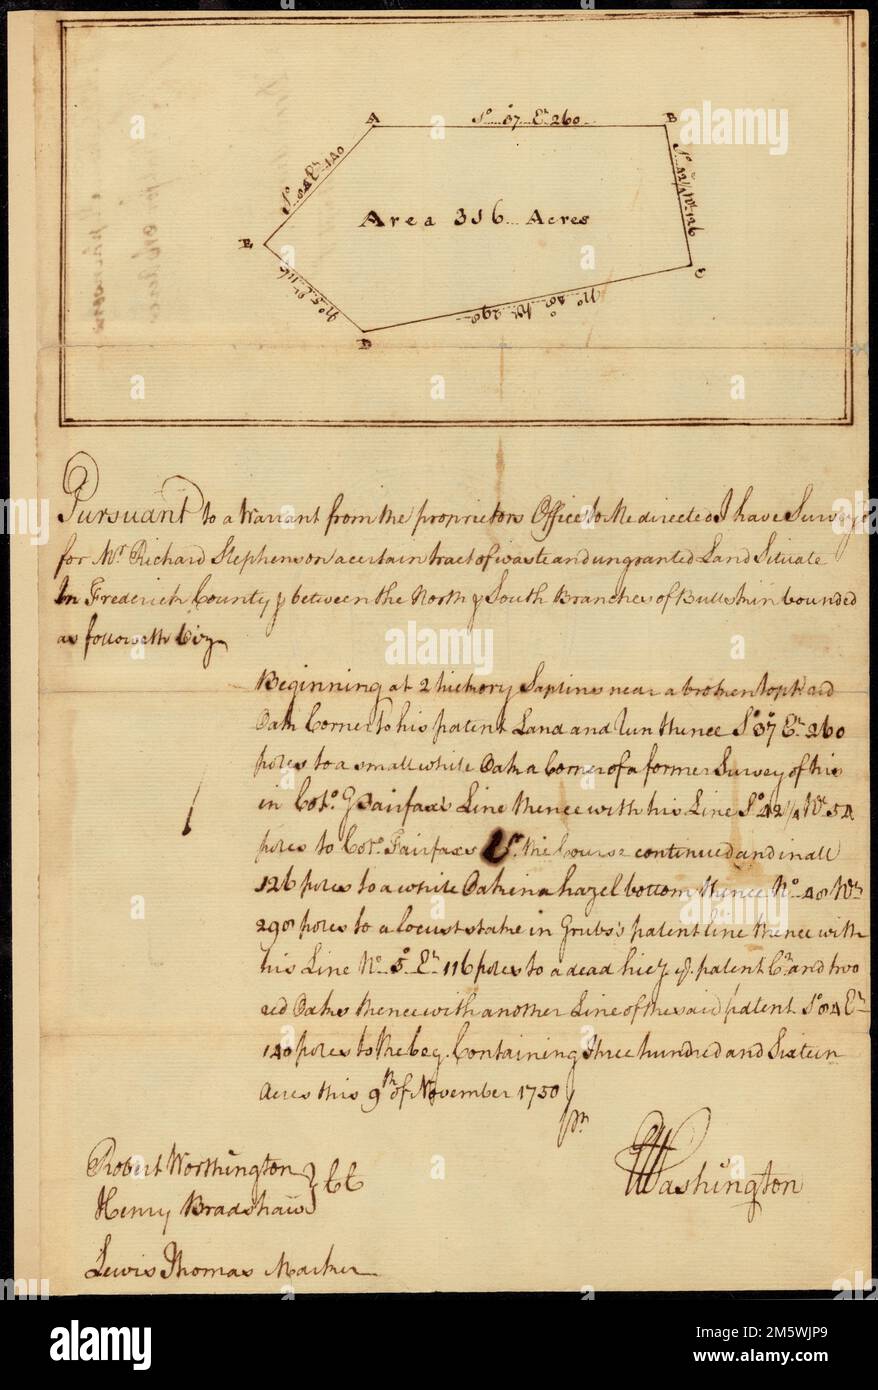 A
So 37 Et 260
B
So 84 Et 140
So 42 1/4 Wt 126
Area 316 Acres
E
C
No 5 Et 116
No 40 Wt 290
D
Pursuant to a Warrant from the proprietors Office to Me directed I have Survey'd
for Mr Richard Stephenson a certain tract of waste and ungranted Land Situate
In Frederick County & between the North & South Branches of Bullskin bounded
as followeth Viz
Beginning at 2 hickory Saplins near a broken topt red
Oak Corner to his patent Land and run thence So 37 Et 260
poles to a small white Oak a Corner of a former Survey of his
in Colo. G Fairfax's Line thence with his Line So 42 1/4 Wt 54
poles to Colo. Fairfaxs Cr. the Course continued and in all
126 poles to a white Oak in a hazel bottom thence No 40 Wt
290 poles to a locust stake in Grubs's patent line thence with
his Line No 5 Et 116 poles to a dead hicy. patent Cr and two
red Oaks thence with another Line of the said patent So 84 Et
140 poles to the beg. Containing three hundred and Sixteen
Acres this 9th of November 1750
pr
Robert Worthington
Henry Bradshaw } CC
Washington
Lewis Thomas Marker
alamy
Image ID: 2M5WJP9
www.alamy.com